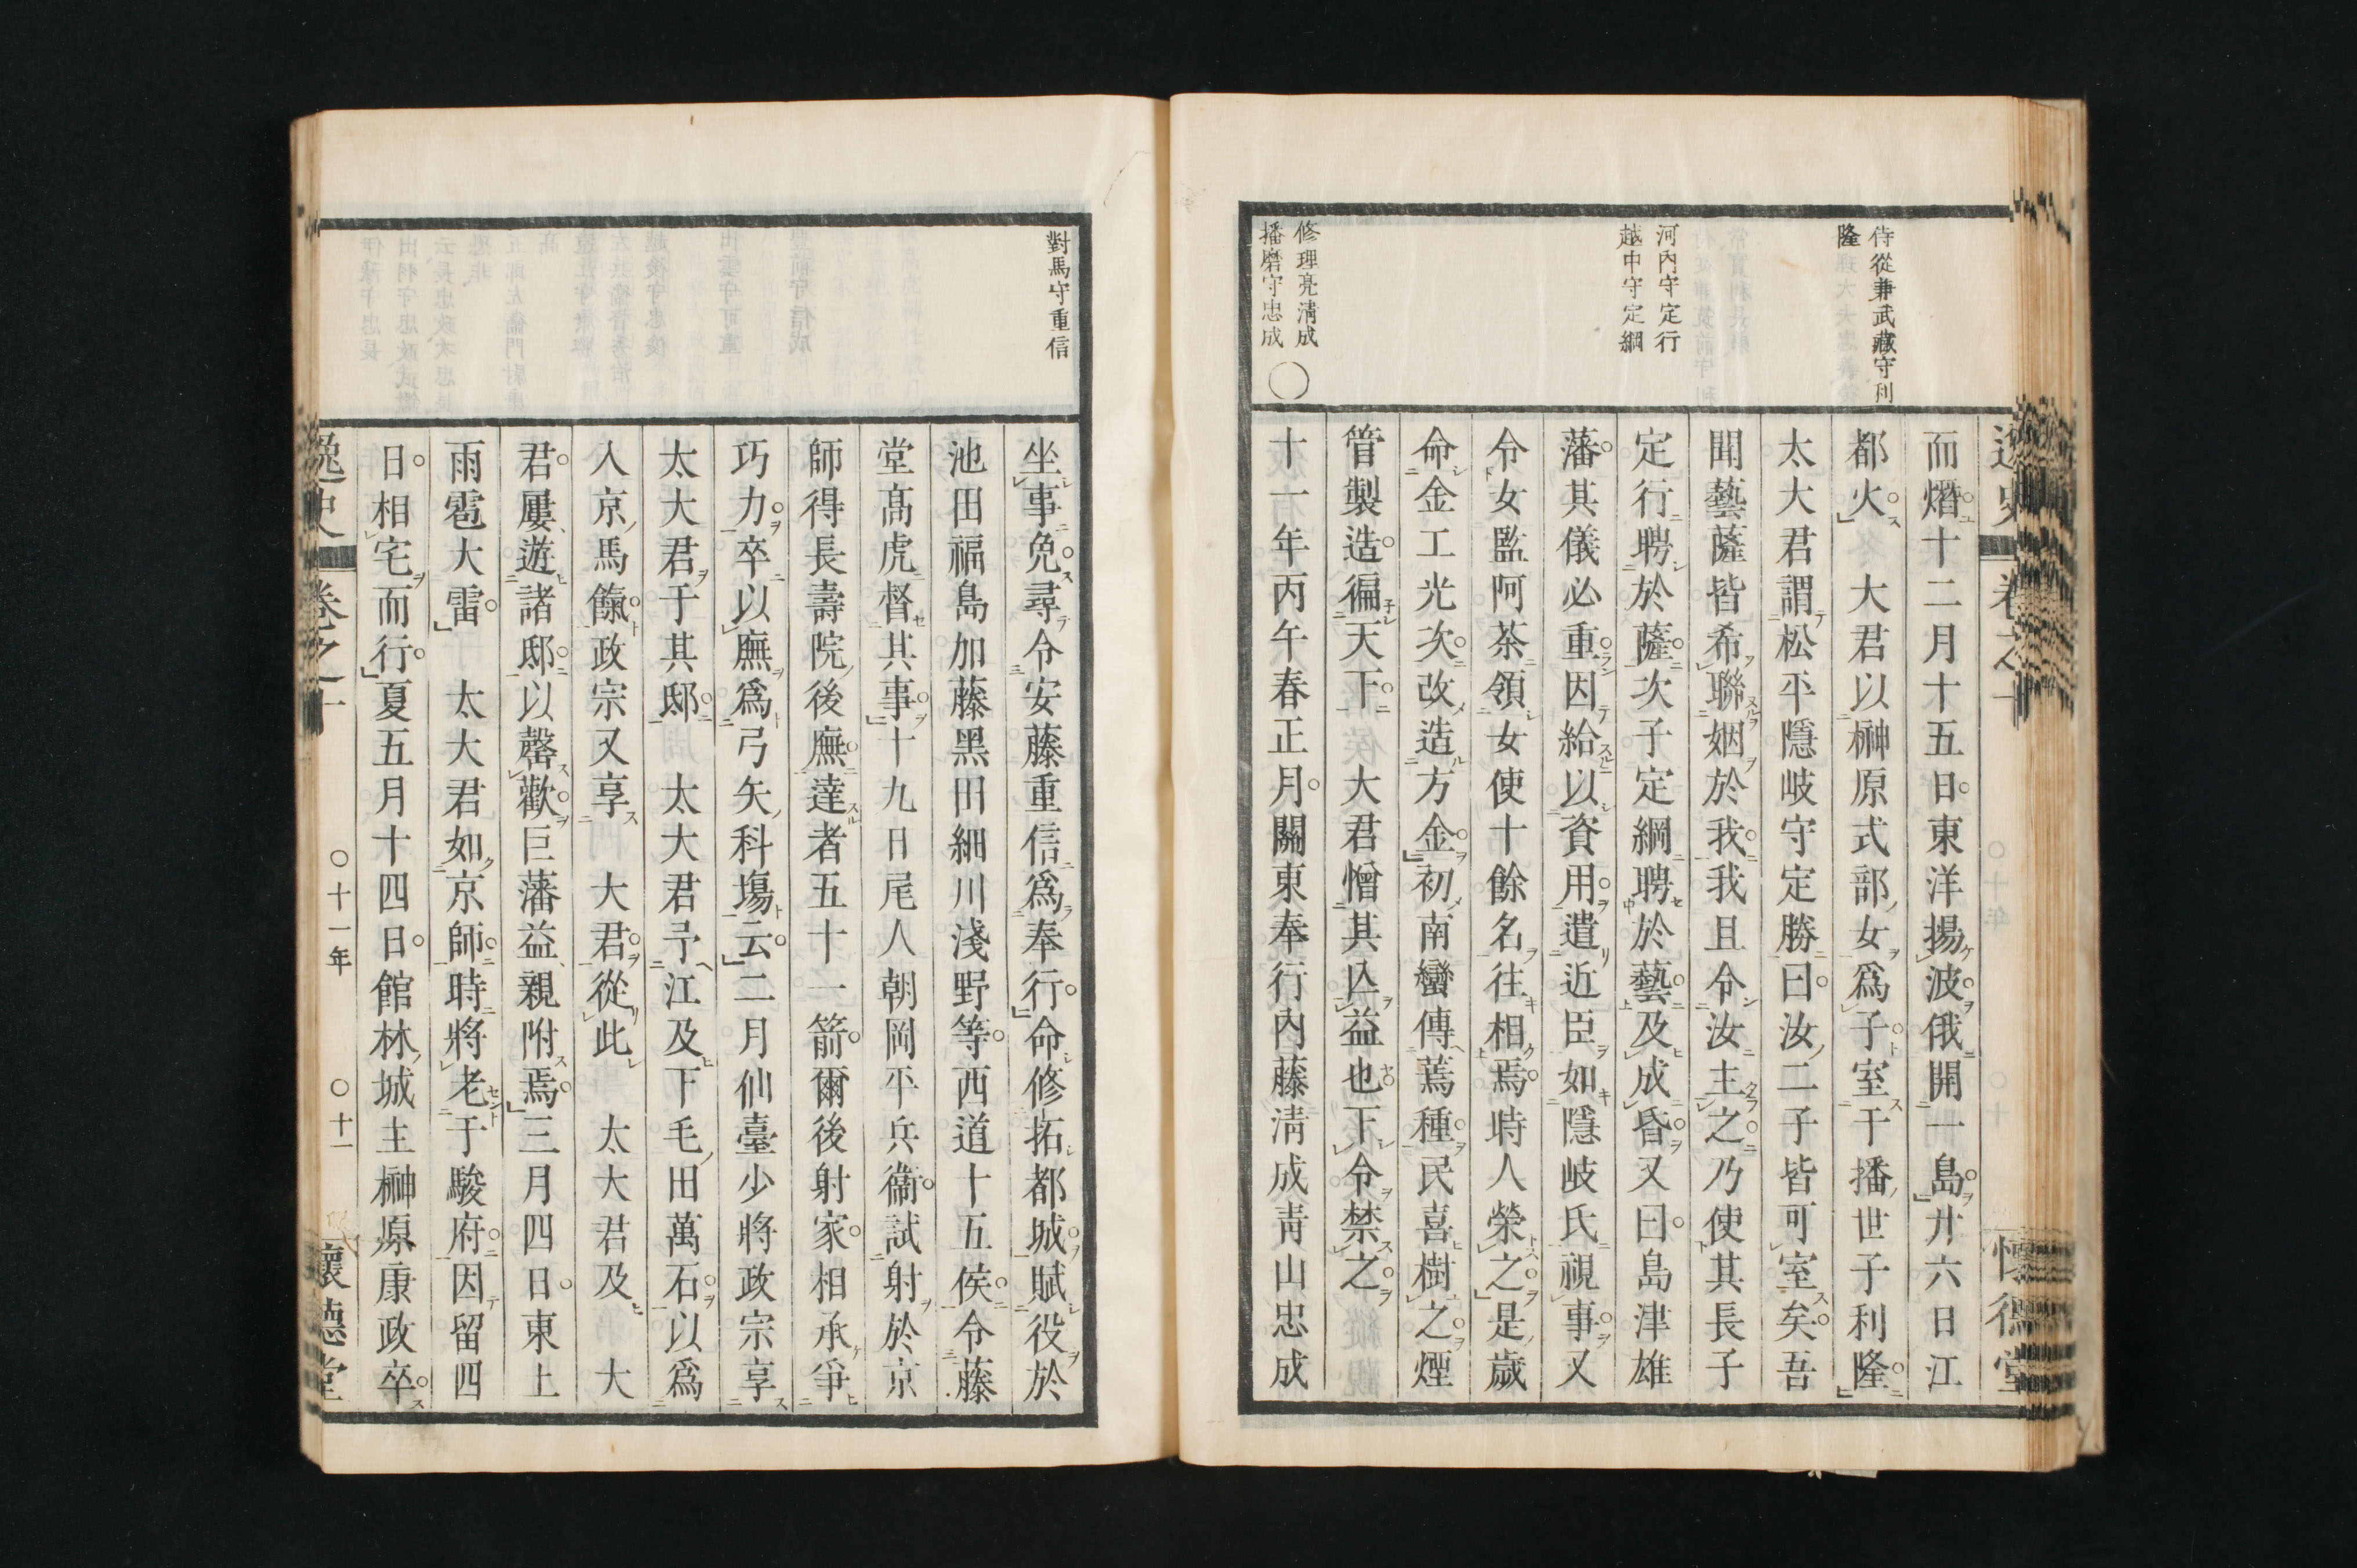 侍從兼武藏守利
隆
河內守定行
越中守定綱
修理亮淸成
播磨守忠成
○
而熸十二月十五日東洋揚波俄開一島廿六日江
都火　大君以榊原式部女爲子室于播世子利隆
太大君謂松平隱岐守定勝曰汝二子皆可室矣吾
聞藝薩皆希聯姻於我我且令汝主之乃使其長子
定行聘於薩次子定綱聘於藝及成昏又曰島津雄
藩其儀必重因給以資用遣近臣如隱岐氏視事又
令女監阿茶領女使十餘名往相焉時人榮之是歲
命金工光次改造方金初南蠻傳蔫種民喜樹之煙
管製造徧天下　大君憎其亾益也下令禁之
十一年丙午春正月關東奉行內藤淸成靑山忠成
對馬守重信
坐事免尋令安藤重信爲奉行命修拓都城賦役於
池田福島加藤黑田細川淺野等西道十五侯令藤
堂高虎督其事十九日尾人朝岡平兵衞試射於京
師得長壽院後廡達者五十一箭爾後射家相承爭
巧力卒以廡爲弓矢科塲云二月仙臺少將政宗享
太大君于其邸　太大君予江及下毛田萬石以爲
入京馬餼政宗又享　大君從此　太大君及　大
君屢遊諸邸以罄歡巨藩益親附焉三月四日東上
雨雹大雷　太大君如京師時將老于駿府因留四
日相宅而行夏五月十四日館林城主榊原康政卒
逸史　卷之十　○十一年　○十一　懷德堂